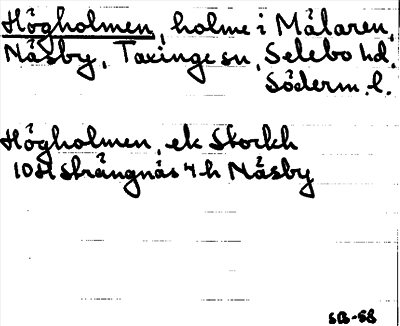 Högholmen, holme i Mälaren,
Näsby, Taxinge sn, Selebo hd.
Söderm. l.
Högholmen, ek Storkh
10H Strängnäs 4h Näsby
SB-58